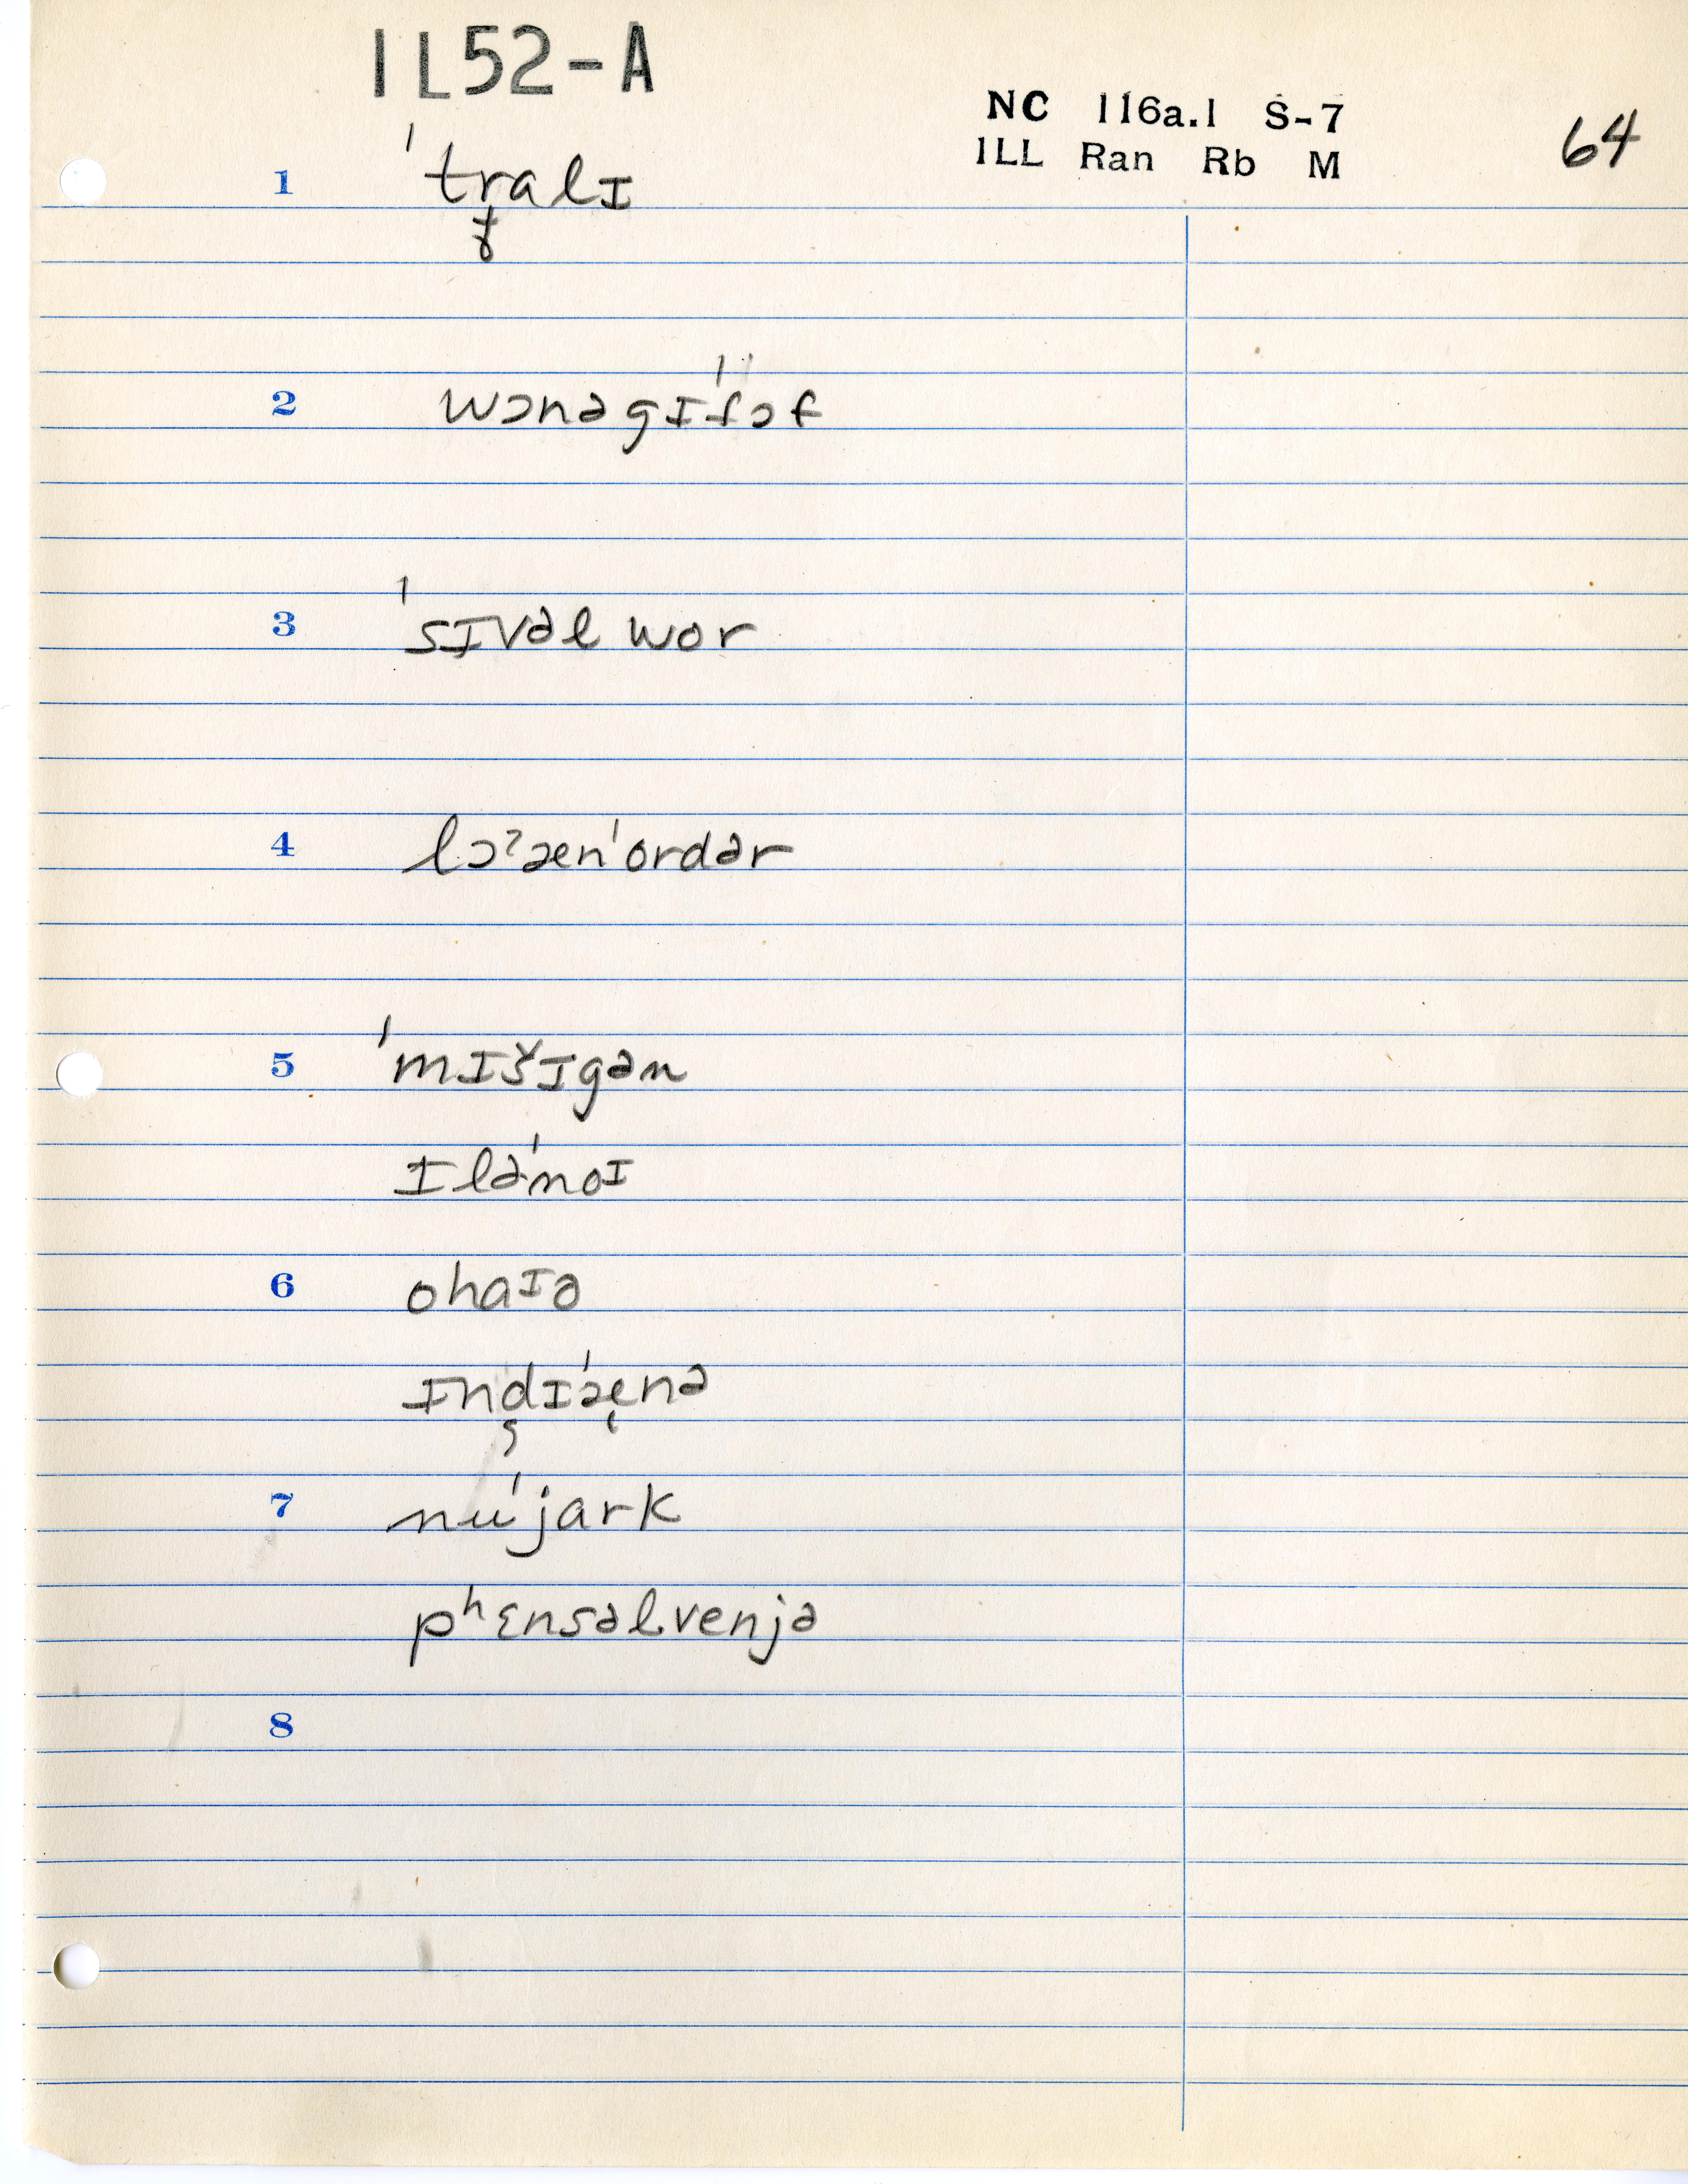 IL52-A
NC 116a.1 S-7
ILL Ran Rb M
64
1 ˈtralɪ
2 wɔnəgɪˈfɔf
3 ˈsɪvəl wor
4 lɔˀænˈordər
5 ˈmɪšɪgən
ɪləˈnoɪ
6 ohaɪə
ɪndɪˈænə
7 nuˈjark
pʰɛnsəlvenjə
8